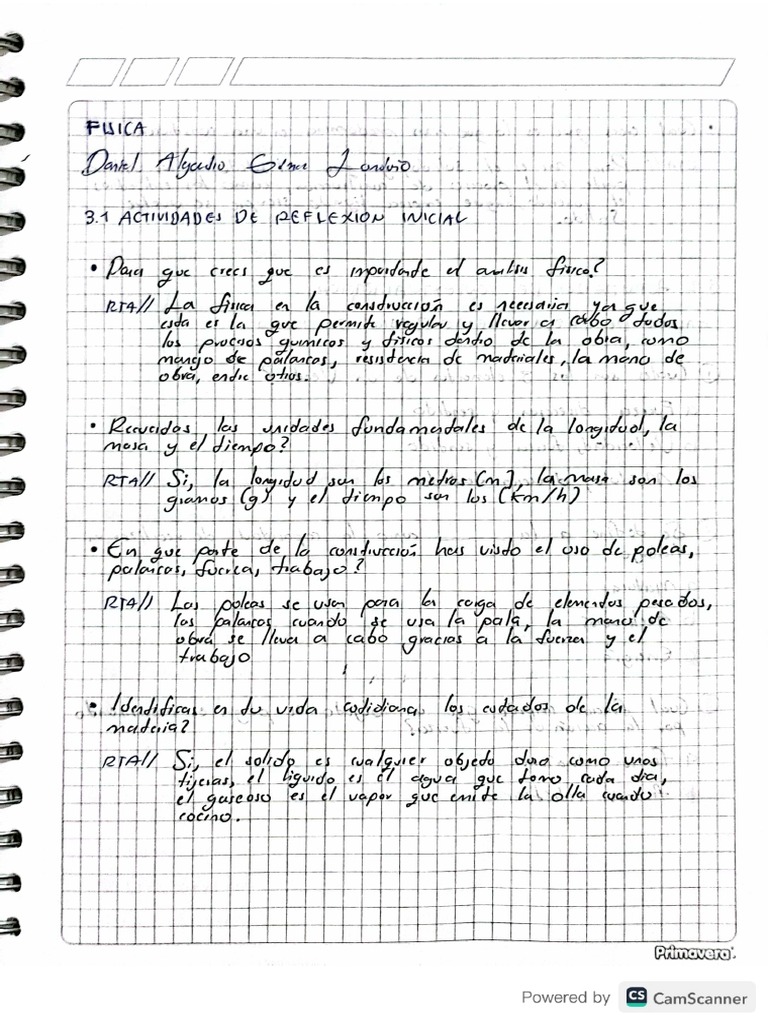 FISICA
Daniel
3.1 ACTIVIDADES DE REFLEXION INICIAL
• Para que crees que es importante el analisis fisico?
RTA// La fisica en la construcción es necesaria ya que
esta es la que permite regular y llevar a cabo todos
los procesos quimicos y fisicos dentro de la obra, como
mango de palancas, resistencia de materiales, la mano de
obra, entre otros.
• Recuerdas las unidades fundamentales de la longitud, la
masa y el tiempo?
RTA// Si, la longitud son los metros (m), la masa son los
gramos (g) y el tiempo son los (km/h)
• En que parte de la construcción has visto el uso de poleas,
palancas, fuerza, trabajo?
RTA// Las poleas se usan para la carga de elementos pesados,
las palancas cuando se usa la pala, la mano de
obra se lleva a cabo gracias a la fuerza y el
trabajo
• Identificas en tu vida cotidiana los estados de la
materia?
RTA// Si, el solido es cualquier objeto duro como unas
tijeras, el liquido es el agua que tomo cada dia,
el gaseoso es el vapor que emite la olla cuando
cocino.
Primavera
Powered by CS CamScanner